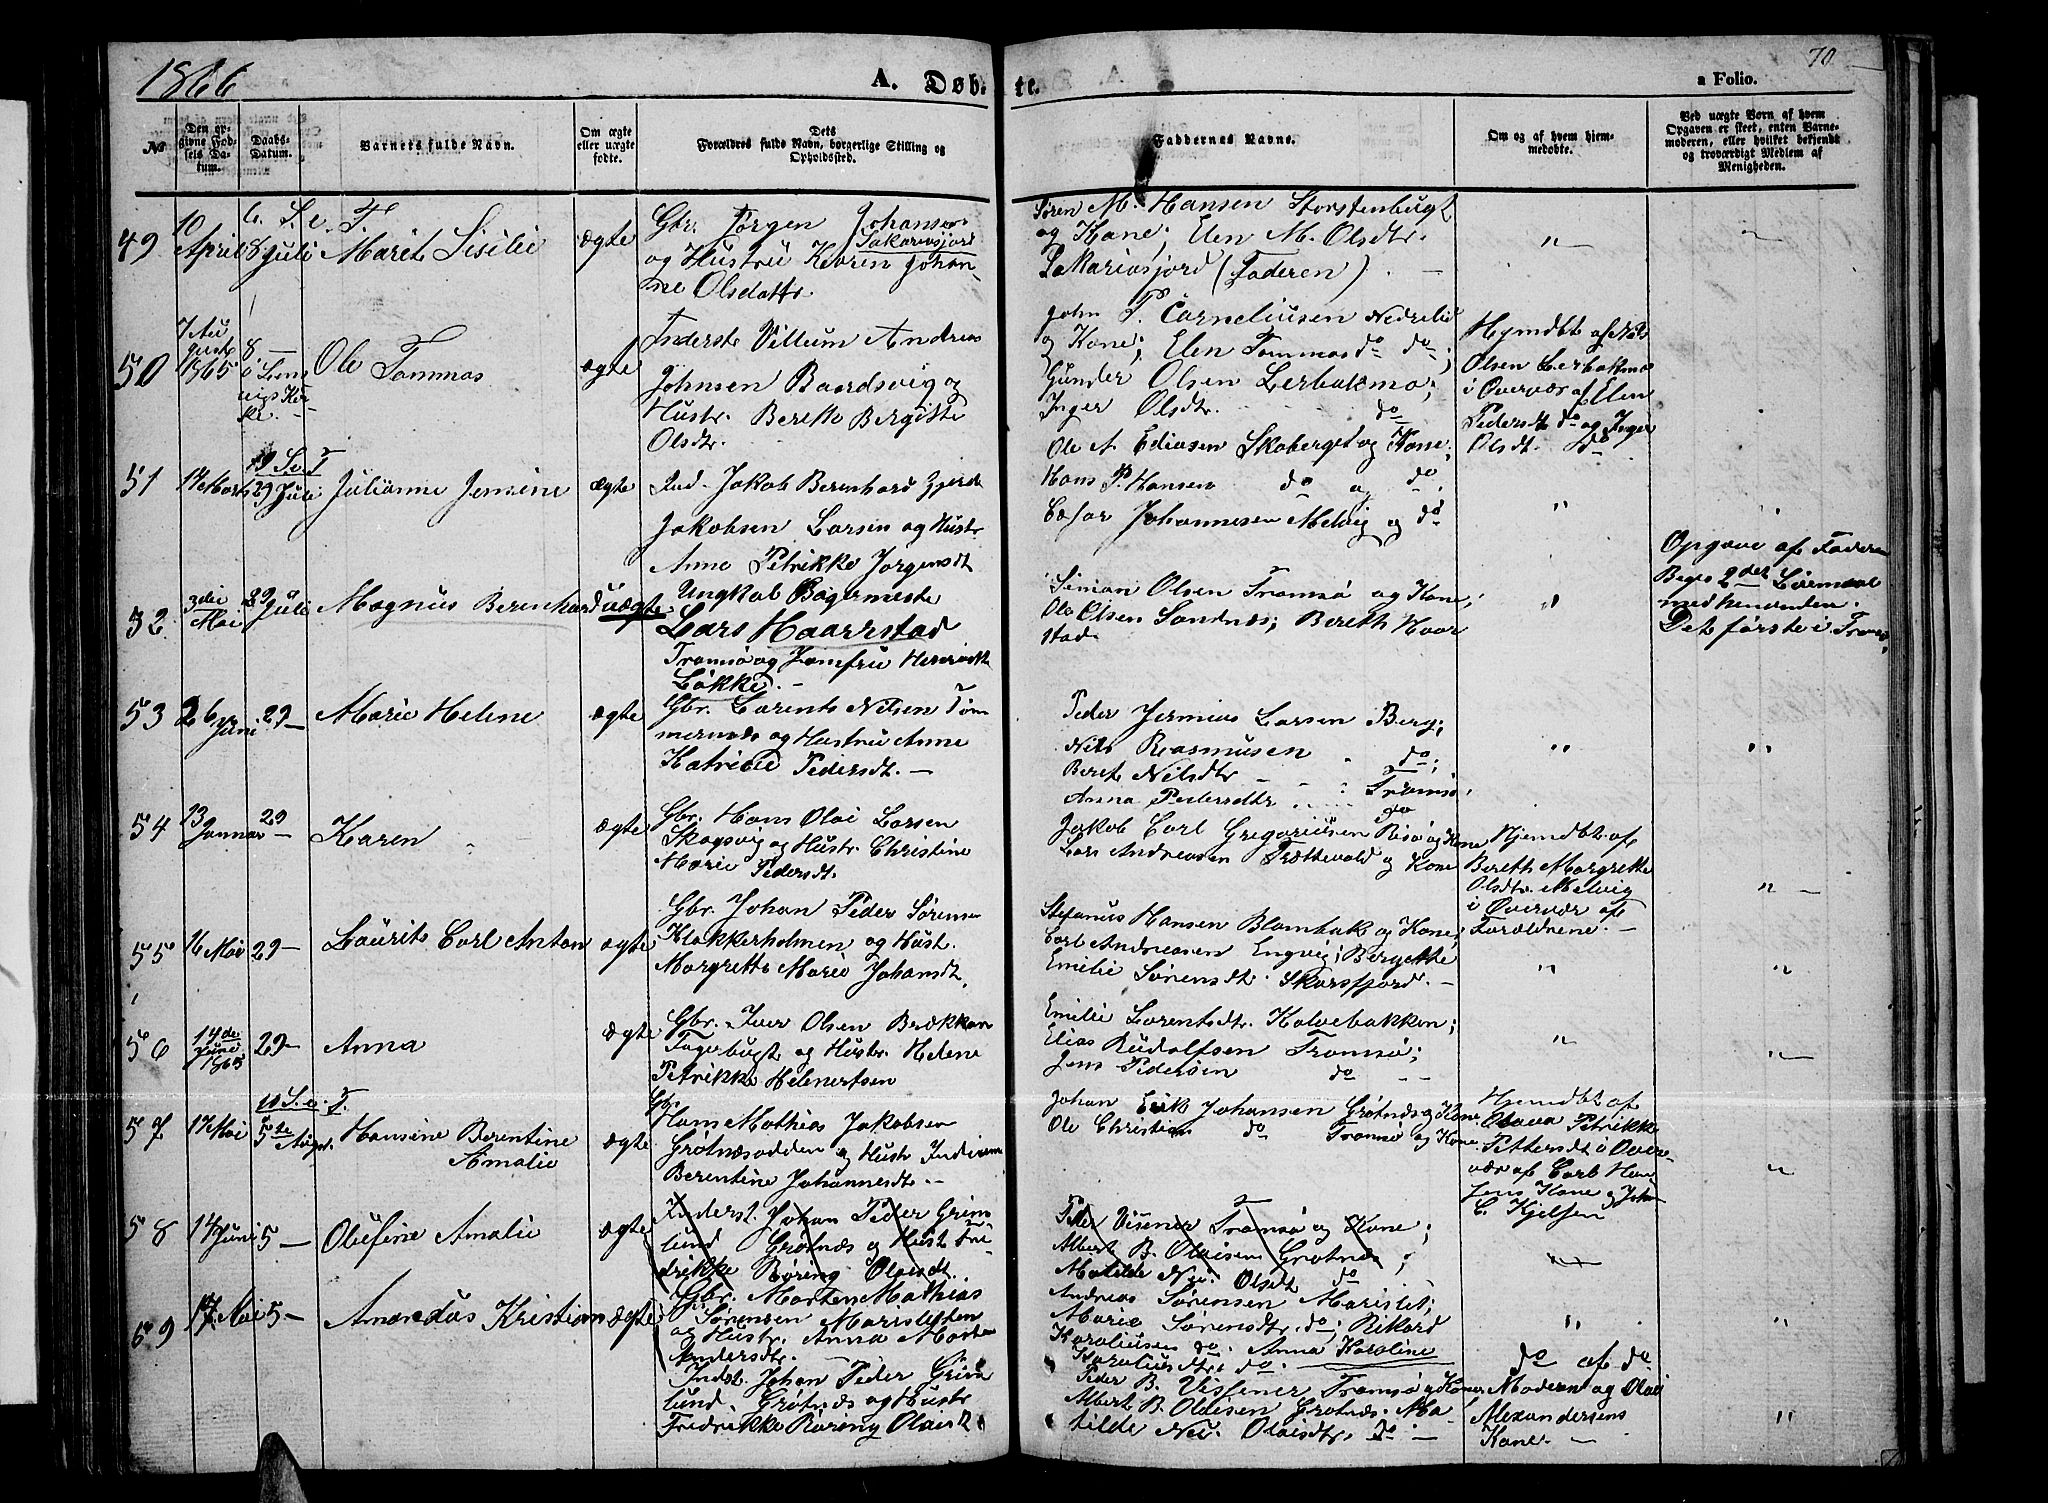 1866
A. Døb-
te.
a Folio.
70
No
Den op-
givne Fød-
sels Da-
tum.
Daabs-
Datum.
Barnets fulde Navn.
Om ægte
eller uægte
fødte.
Dets
Forældres fulde Navn, borgerlige Stilling og
Opholdssted.
Faddernes Navne.
Om og af hvem hjem-
medøbte.
Ved uægte Born af hvem
Opgaven er skeet, enten Barne-
moderen, eller hvilket bekjendt
og troværdigt Medlem af
Menigheden.
49
10
April
6. S. e. T.
8 Juli
Maret Sisilie
ægte
Gbr. Jørgen Johansen
Sakariasjord
og Hustru Karen Johan-
ne Olsdattr.
Søren M. Hansen Storstenbugt
og Kone; Elen M. Olsdtr.
Sakariasjord (Faderen). —
50
7 Au
guste
1865
8 —
i Lens
vigs Kir
ke.
Ole Tommas
ægte
Inderste Villum Andreas
Johnsen Baardsvig og
Hustr. Bereth Bergitte
Olsdtr.
John P. Corneliusen Nedrelid
og Kone; Elen Tommasdo do;
Gunder Olsen Lerbakmo;
Inger Olsdtr. do
Hjmdbt af Nils
Olsen Lerbakmo
i Overvær af Elen
Pedersdt do og Inger
Olsdt. do
51
14 Marts
9 S. e. T
29 Juli
Julianne Jensine
ægte
Ind. Jakob Berenhard
Jakobsen Larsen og Hustr
Anne Petrikke Jørgensdt
Ole A. Ediasen Skaberget og Kone;
Hans P. Hansen do og do;
Johannesen Melvig og do
52
3die
Mai
29
Juli
Magnus Berenhard
uægte
Ungkal Bøgermeste
Lars Haarstad
Tromsø og Jomfru Henrikke
Løkke. —
Simon Olsen Tromsø og Kone;
Ole Olsen Sandnæs; Bereth Haar
stad
Opgave af Faderen
Beges 2det Leiermaal
med hinanden.
Det første i Tromsø
53
26
Juni
29 —
Marie Helene
ægte
Gbr. Lorents Nilsen Tøm
mernæs og Hustru Anne
Katrine Pedersdt. —
Peder Jermias Larsen Berg;
Nils Rasmusen do;
Beret Nilsdtr — — Tromsø;
Anna Pedersdtr do
54
13
Januar
29
—
Karen
ægte
Gbr. Hans Olai Larsen
Skogsvig og Hustr. Christine
Marie Pedersdt.
Jakob Carl Gregoriusen Risø og Kone
Lars Andreasen Trættevold og Kone
Hjemdbt. af
Bereth Margrethe
Olsdtr. Melvig
i Overvær af
Forældrene. —
55
16 Mai
29 —
Laurits Carl Anton
ægte
Gbr. Johan Peder Sørensen
Klokkerholmen og Hust.
Margrethe Marie Johansdt.
Stefanus Hansen Blomhak og Kone;
Carl Andreasen Engvig; Bergette
Emilie Sørensdt. Skarsfjord. —
56
14de
Juni
1865
29 —
Anna
ægte
Gbr. Iver Olsen Brækkan
bugt og Hustr. Helene
Petrikke Helnertsen
Emilie Lorentsdtr. Kalvebakken;
Elias Rudolfsen Tromsø;
Jens Pedersen do — —
57
17 Mai
10 S. e. T.
5te
August.
Hansine Berentine
Amalie
ægte
Gbr.
Hans Mathias Jakobsen
Grøtnæsodden og Hustr
Berentine Johannesdt. —
Johan Erik Johansen Grøtnæs og Kone.
Ole Christian do Tromsø og Kone
Hjemdbt af
Petrikke
Pettersdt i Over-
vær af Carl Han
sens Kone og Joh.
C. Kjelsen
58
14 Juni
5 —
Olufine Amalie
ægte
Inderst. Johan Peder Grim
lund Grøtnæs og Hust Fre
drekke Røring Olaisdt.
Peder Visener Tromsø og Kone;
Albert B. Olaisen Grøtnæs;
Matilde Nri. Olsdt do
69
17. Mai
5 —
Amandus Kristian
ægte
Gbr. Morten Mathias
Sørensen Marisletten
og Hustr. Anna Marta
Andersdtr. —
Indst. Johan Peder Grim
lund. Grøtnæs og Hustr
Fredrikke Røring Olaisdt
Andreas Sørensen Marislet;
Marie Sørensdtr. do; Rikard
Karoliusen do. Anna Karoline
Karoliusdtr. do.
Peder B. Vissener Tromsø og Kone.
Albert B. Olaisen Grøtnæs. Ma
tilde Nri. Olaisdtr. do —
do af do.
Moderen og Olai
Alexandersens
Kone. —